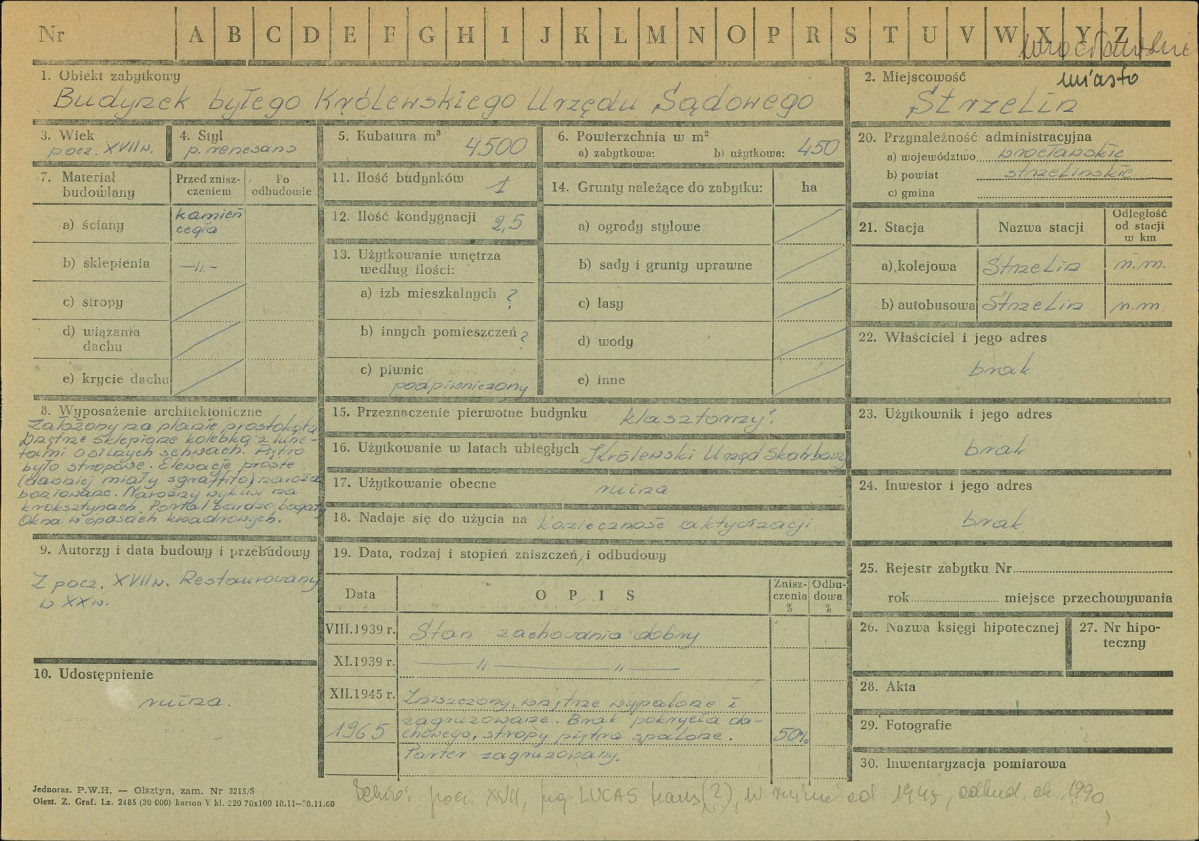 Nr A B C D E F G H I J K L M N O P R S T U V W X Y Z
miasto
1. Obiekt zabytkowy
Budynek byłego Królewskiego Urzędu Sądowego
2. Miejscowość
Strzelin
3. Wiek
pocz. XVII w.
4. Styl
p. renesans
5. Kubatura m³
4500
6. Powierzchnia w m²
a) zabytkowa: b) użytkowa: 450
20. Przynależność administracyjna
a) województwo wrocławskie
b) powiat strzelińskie
c) gmina
7. Materiał budowlany
Przed zniszczeniem
Po odbudowie
a) ściany kamień cegła
b) sklepienia —„—
c) stropy
d) wiązania dachu
e) krycie dachu
11. Ilość budynków 1
12. Ilość kondygnacji 2,5
13. Użytkowanie wnętrza według ilości:
a) izb mieszkalnych ?
b) innych pomieszczeń ?
c) piwnic
podpiwniczony
14. Grunty należące do zabytku: ha
a) ogrody stylowe
b) sady i grunty uprawne
c) lasy
d) wody
e) inne
21. Stacja
Nazwa stacji
Odległość od stacji w km
a) kolejowa Strzelin n.m.
b) autobusowa Strzelin n.m.
22. Właściciel i jego adres
brak
8. Wyposażenie architektoniczne
Założony na planie prostokąta
Wnętrze sklepione kolebką z lune-
tami o silnych szwach. Piętro
było stropowe. Elewacje proste
(dawniej miały sgraffito) naroża
boniowane. Narożny wykusz na
kroksztynach. Portal bardzo bogaty
Okna w opasach kwadrowych.
15. Przeznaczenie pierwotne budynku klasztorny?
16. Użytkowanie w latach ubiegłych Królewski Urząd Skarbowy
17. Użytkowanie obecne ruina
18. Nadaje się do użycia na konieczność aktywizacji
23. Użytkownik i jego adres
brak
24. Inwestor i jego adres
brak
9. Autorzy i data budowy i przebudowy
Z pocz. XVII w. Restaurowany
w XX w.
19. Data, rodzaj i stopień zniszczeń i odbudowy
Data OPIS Zniszczenia % Odbudowa %
VIII.1939 r. Stan zachowania dobry
XI.1939 r. —„— —„—
XII.1945 r. Zniszczony, wnętrze wypalone i
1965 zagruzowane. Brak pokrycia da-
chowego, stropy piętra spalone. 50%
Parter zagruzowany.
25. Rejestr zabytku Nr
rok miejsce przechowywania
26. Nazwa księgi hipotecznej
27. Nr hipoteczny
10. Udostępnienie
ruina.
28. Akta
29. Fotografie
30. Inwentaryzacja pomiarowa
Jednoraz. P.W.H. — Olsztyn, zam. Nr 3215/S
Olszt. Z. Graf. Lz. 2485 (30 000) karton V kl. 220 70x100 10.11—30.11.60
pocz. XVII, LUCAS (?), w ruinie od 1945, odbud. ok. 1990